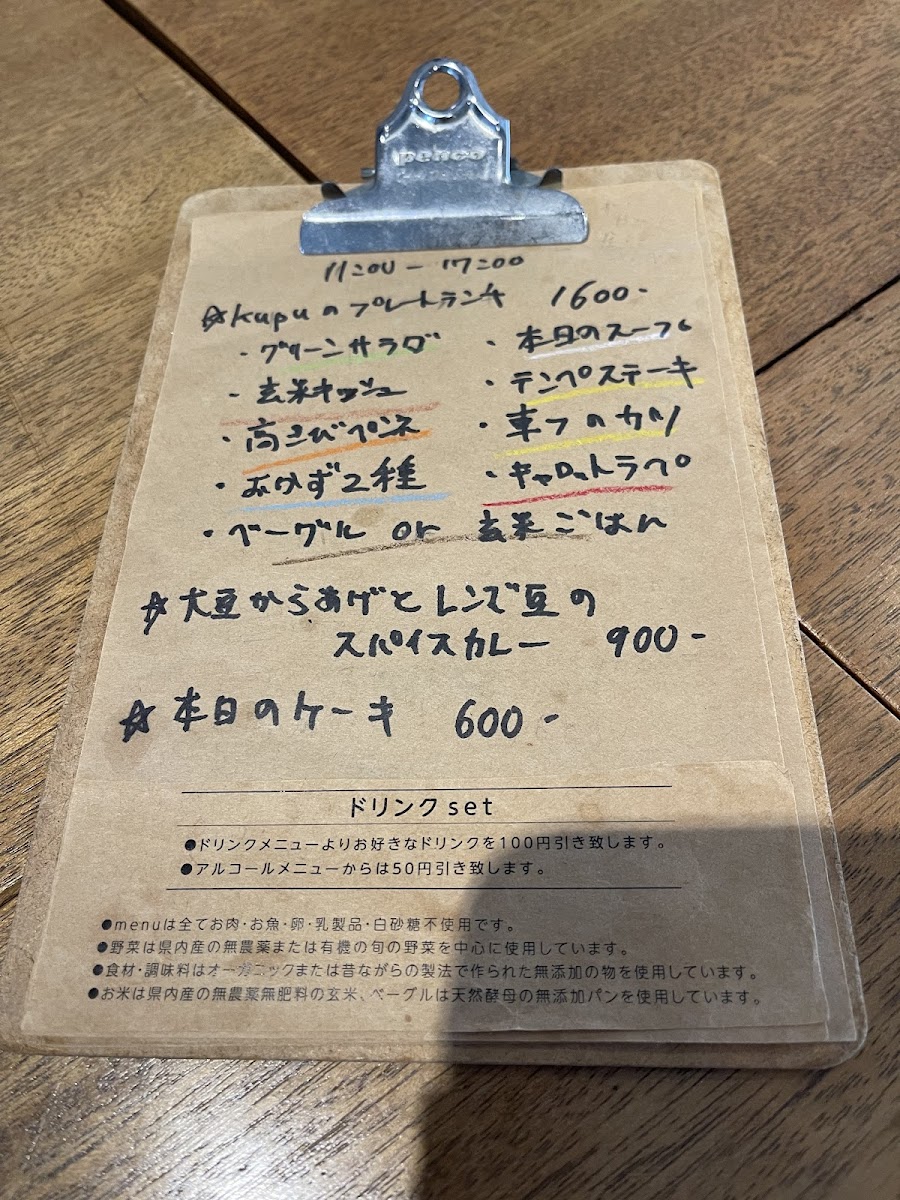 penco
11:00 - 17:00
☆kupuのプレートランチ 1600-
・グリーンサラダ ・本日のスープ
・玄米キッシュ ・テンペステーキ
・高きびペンネ ・車フのカツ
・おかず2種 ・キャロットラペ
・ベーグル or 玄米ごはん
☆大豆からあげとレンズ豆の
スパイスカレー 900-
☆本日のケーキ 600-
ドリンクset
●ドリンクメニューよりお好きなドリンクを100円引き致します。
●アルコールメニューからは50円引き致します。
●menuは全てお肉・お魚・卵・乳製品・白砂糖不使用です。
●野菜は県内産の無農薬または有機の旬の野菜を中心に使用しています。
●食材・調味料はオーガニックまたは昔ながらの製法で作られた無添加の物を使用しています。
●お米は県内産の無農薬無肥料の玄米、ベーグルは天然酵母の無添加パンを使用しています。